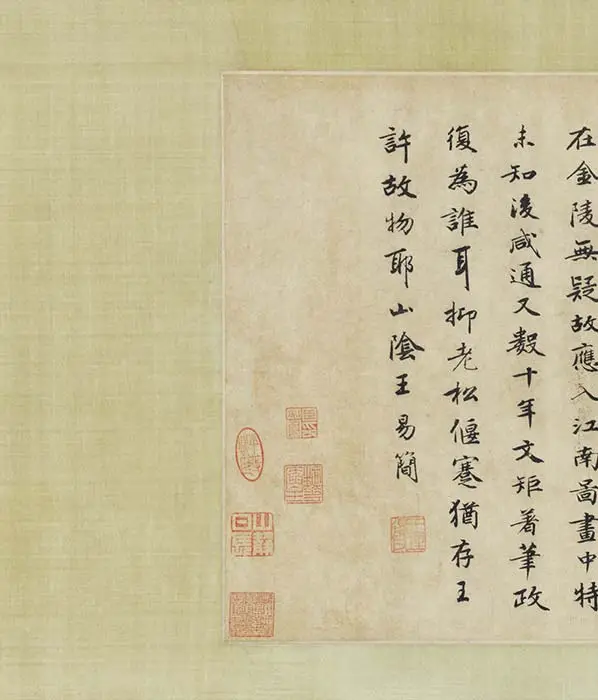 在金陵無疑故應入江南圖畫中特
未知後咸通又數十年文矩著筆政
復為誰耳抑老松偃蹇猶存王
許故物耶山陰王易簡